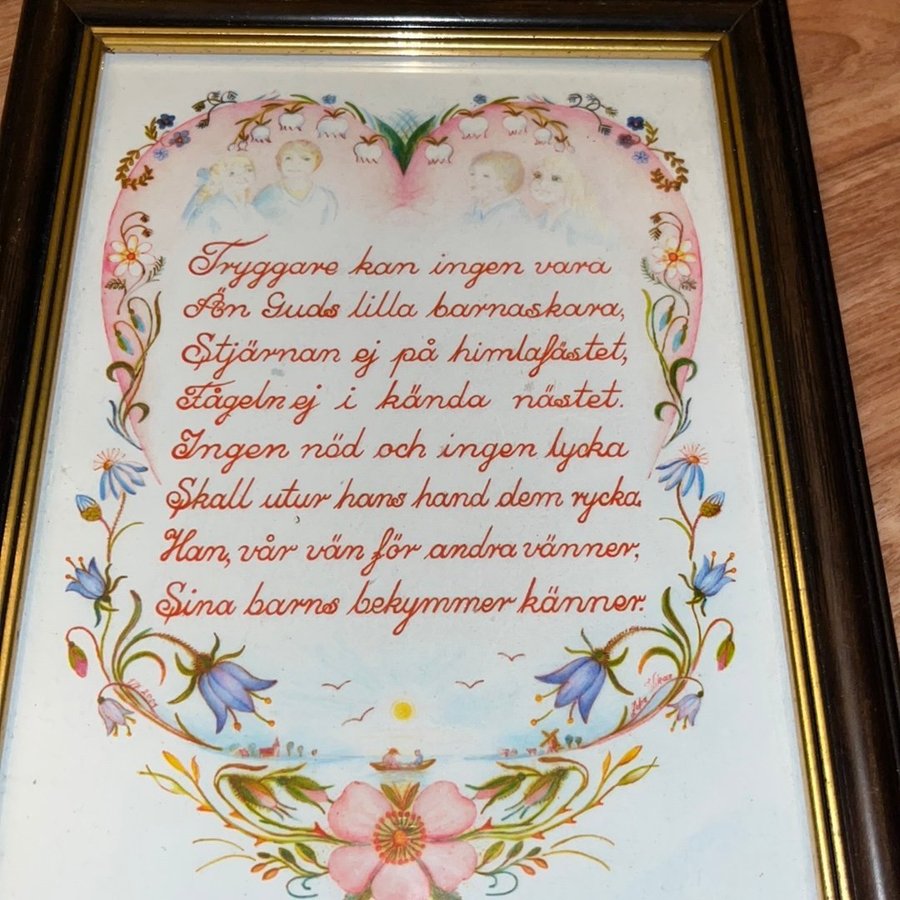 Tryggare kan ingen vara
Än Guds lilla barnaskara,
Stjärnan ej på himlafästet,
Fågeln ej i kända nästet.
Ingen nöd och ingen lycka
Skall utur hans hand dem rycka.
Han, vår vän för andra vänner,
Sina barns bekymmer känner.